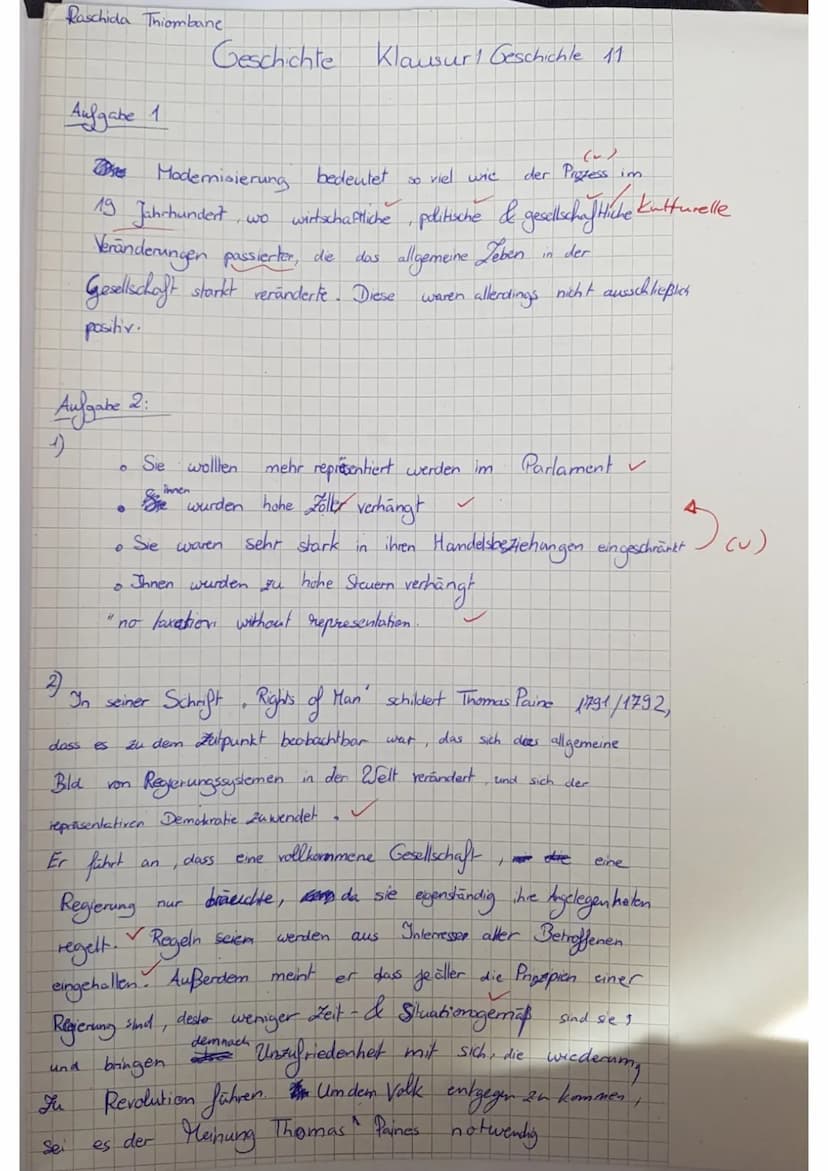 Raschida Thiombane
Geschichte Klausur 1 Geschichte 11
Aufgabe 1
(v)
Modernisierung bedeutet so viel wie der Prozess im
19 Jahrhundert, wo wirtschaftliche, politische & gesellschaftliche kulturelle
Veränderungen passierten, die das allgemeine Leben in der
Gesellschaft starkt veränderte. Diese waren allerdings nicht ausschließlich
positiv.
Aufgabe 2:
1)
• Sie wollten mehr repräsentiert werden im Parlament ✓
• ihnen wurden hohe Zölle verhängt ✓
• Sie waren sehr stark in ihren Handelsbeziehungen eingeschränkt (v)
• Ihnen wurden zu hohe Steuern verhängt
"no taxation without representation. ✓
2)
In seiner Schrift „Rights of Man" schildert Thomas Paine 1791/1792,
dass es zu dem Zeitpunkt beobachtbar war, das sich das allgemeine
Bld von Regierungssystemen in der Welt verändert und sich der
repräsentativen Demokratie zuwendet. ✓
Er führt an, dass eine vollkommene Gesellschaft, eine
Regierung nur bräuchte, da sie eigenständig ihre Angelegenheiten
regelt. ✓ Regeln werden aus Interesse aller Betroffenen
eingehalten. ✓ Außerdem meint er das je älter die Prinzipien einer
Regierung sind, desto weniger Zeit- & Situationsgemäß sind sie,
und bringen demnach Unzufriedenheit mit sich, die wiederum
zu Revolution führen. Um dem Volk entgegen zu kommen,
sei es der Meinung Thomas Paines notwendig